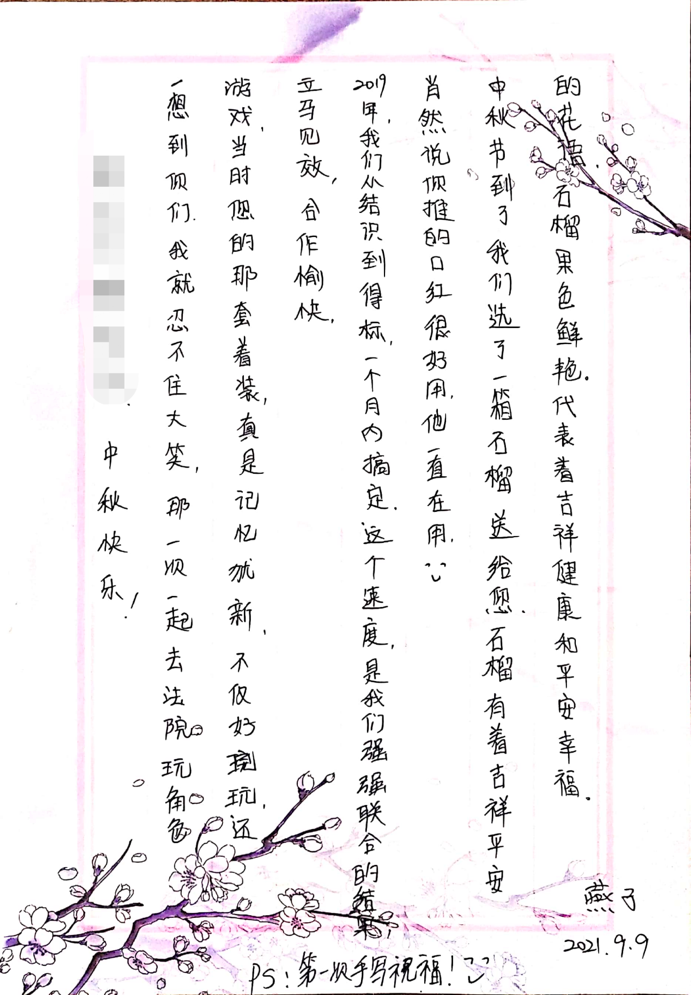 中秋快乐！
一想到你们，我就忍不住大笑，那一次一起去法院玩角色
游戏，当时您的那套着装，真是记忆犹新，不仅好玩，还
立马见效，合作愉快，
2019年，我们从结识到得标，一个月内搞定，这个速度，是我们强强联合的结果，
肖然说你推的口红很好用，他一直在用，
中秋节到了我们选了一箱石榴送给您，石榴有着吉祥平安
的花语，石榴果色鲜艳。代表着吉祥健康和平安幸福。
燕子
2021.9.9
PS：第一次手写祝福！